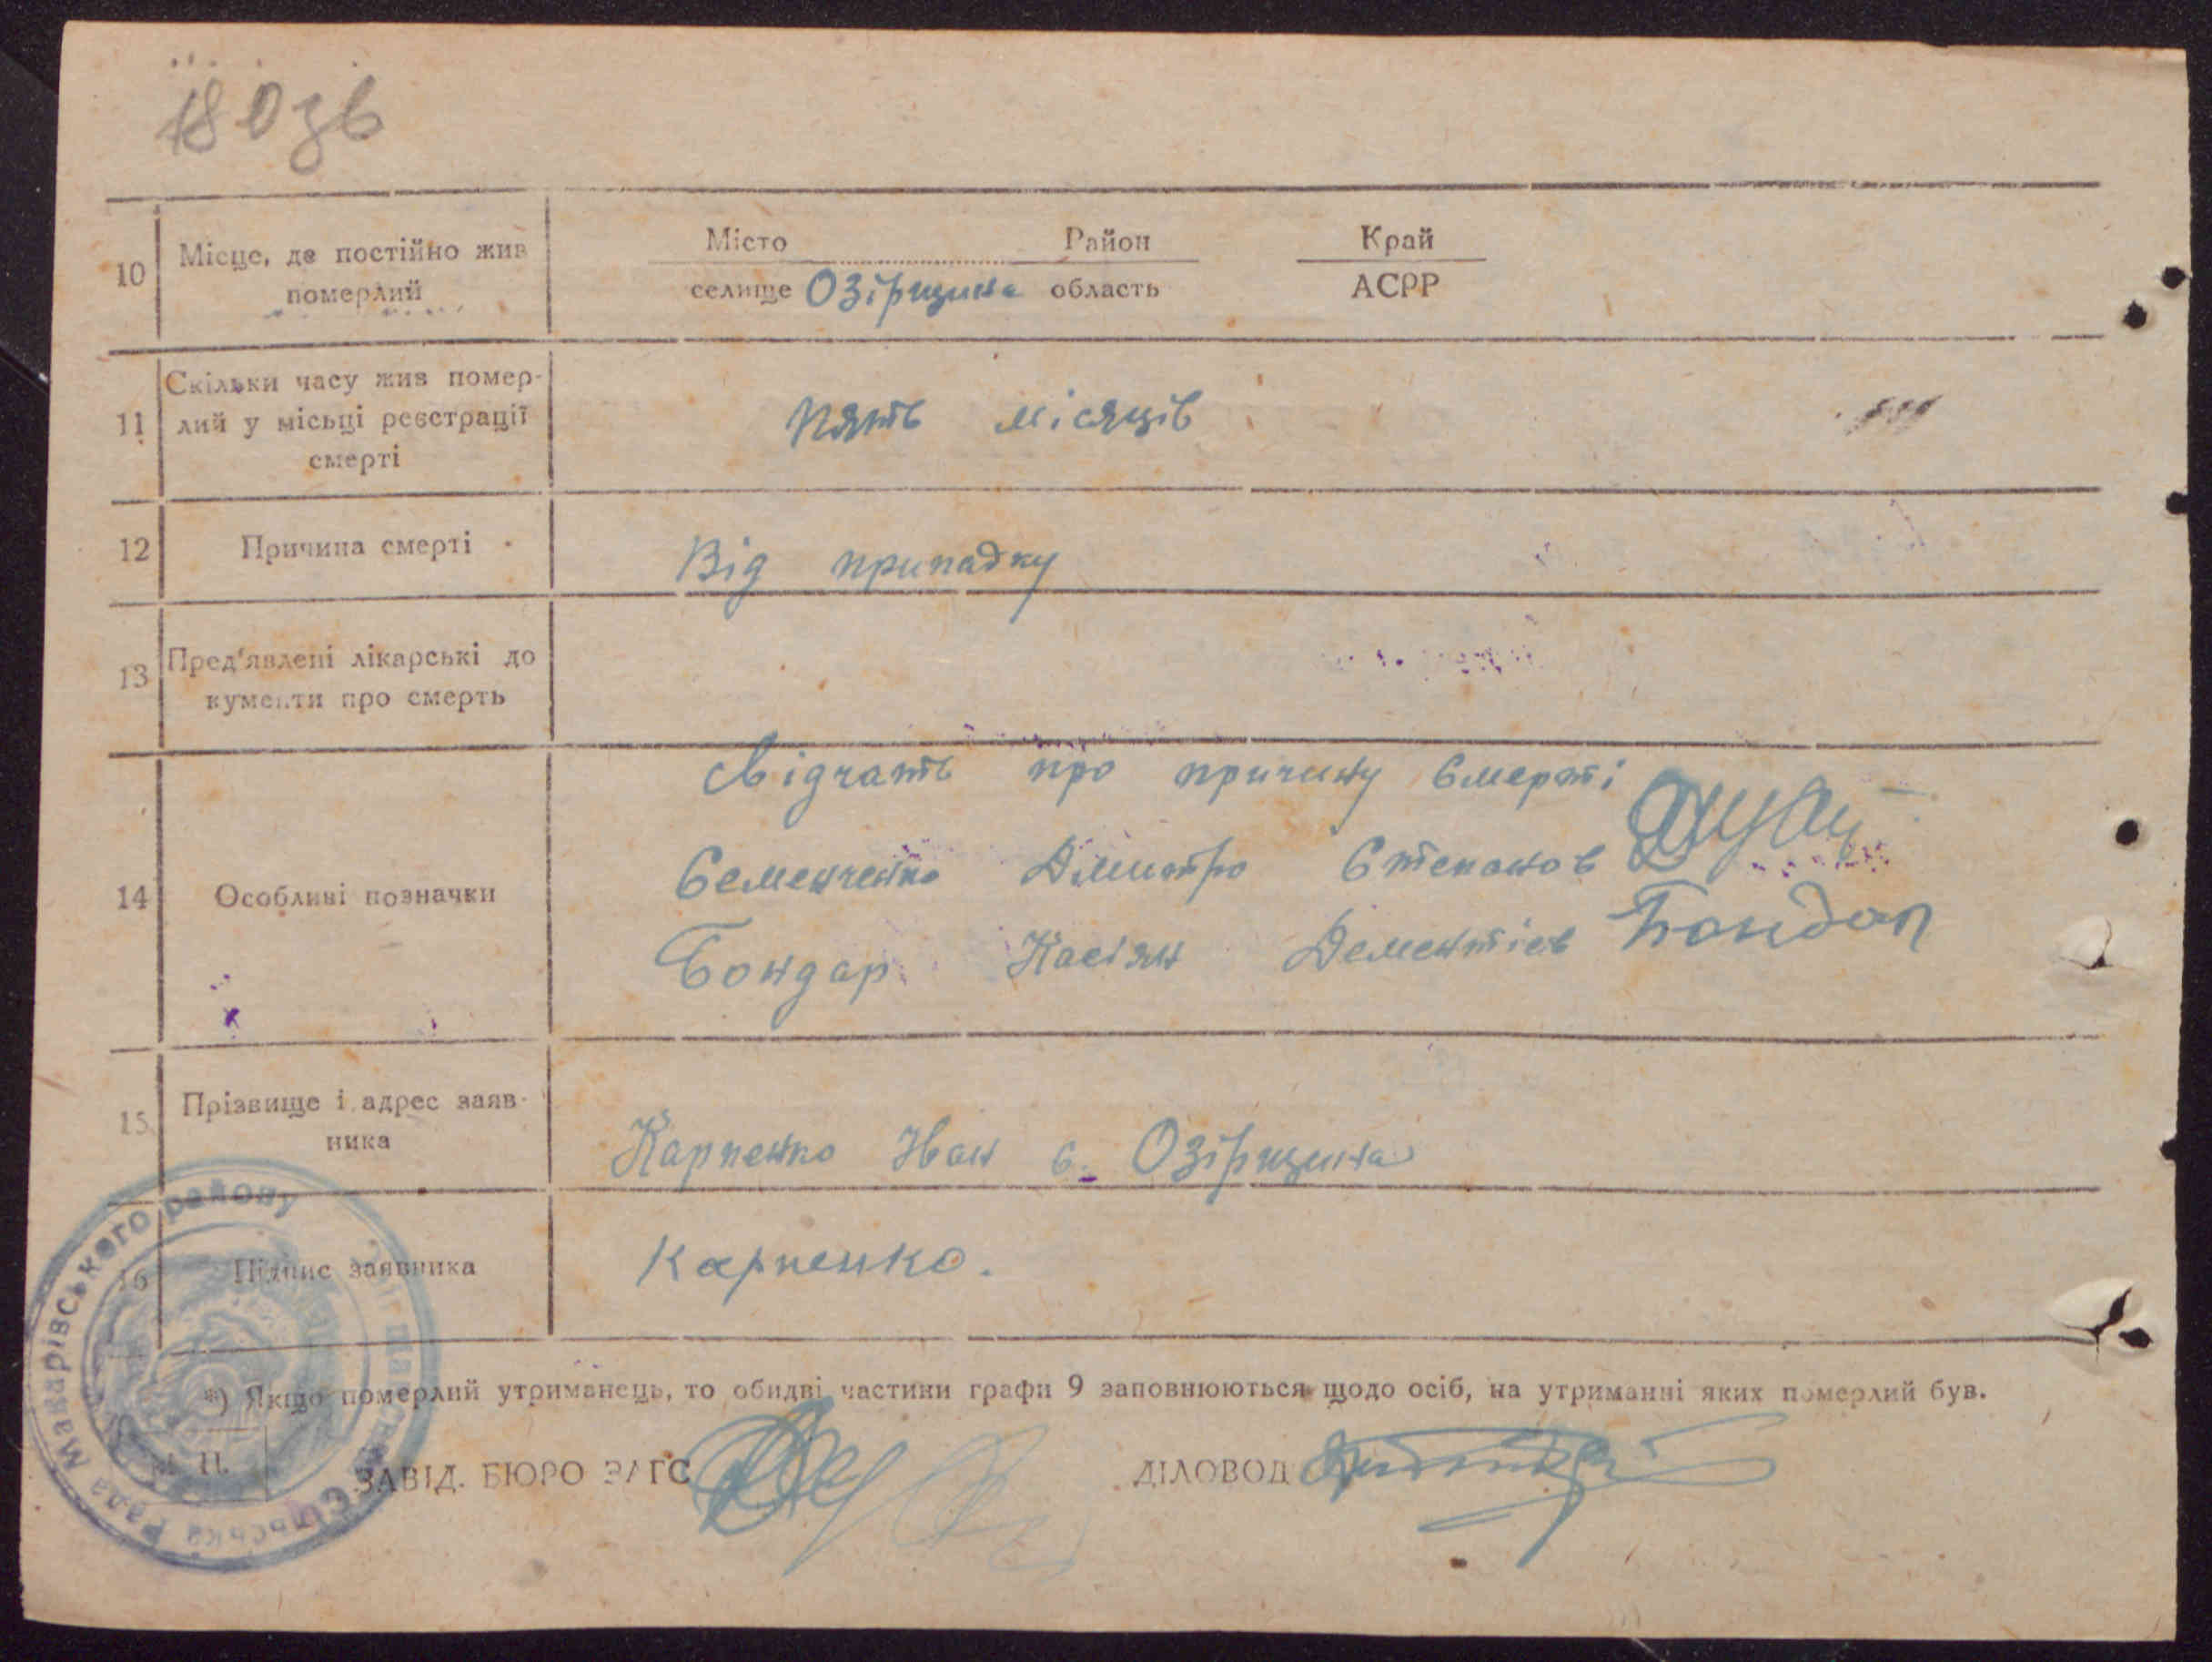 180 зв
10 Місце, де постійно жив померлий
Місто Район Край
селище Озірщина область АСРР
11 Скільки часу жив помер-
лий у місьці реєстрації
смерті
пять місяців
12 Причина смерті
Від припадку
13 Пред'явлені лікарські до
кументи про смерть
14 Особливі позначки
свідчать про причину смерті
Семенченко Дмитро Степанов
Бондар Касіян Дементіев Бондар
15 Прізвище і адрес заяв-
ника
Карпенко Іван с. Озірщина
16 Підпис заявника
Карпенко.
*) Якщо померлий утриманець, то обидві частини графи 9 заповнюються щодо осіб, на утриманні яких померлий був.
М. П.
ЗАВІД. БЮРО ЗАГС ДІЛОВОД
Сільська Рада Макарівського району